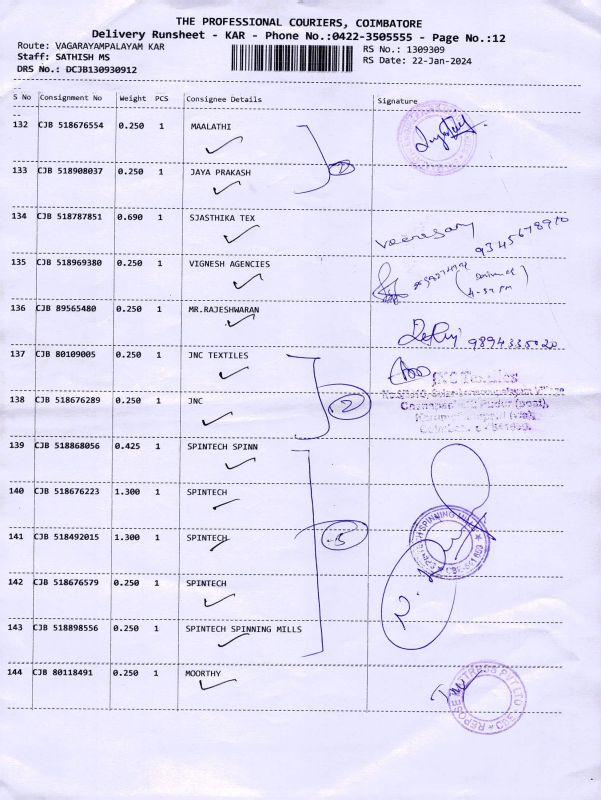 THE PROFESSIONAL COURIERS, COIMBATORE
Delivery Runsheet - KAR - Phone No.:0422-3505555 - Page No.:12
Route: VAGARAYAMPALAYAM KAR
RS No.: 1309309
Staff: SATHISH MS
RS Date: 22-Jan-2024
DRS No.: DCJB130930912
S No Consignment No Weight PCS Consignee Details Signature
132 CJB 518676554 0.250 1 MAALATHI
133 CJB 518908037 0.250 1 JAYA PRAKASH
2
134 CJB 518787851 0.690 1 SJASTHIKA TEX
9345678970
135 CJB 518969380 0.250 1 VIGNESH AGENCIES
136 CJB 89565480 0.250 1 MR.RAJESHWARAN
9894335020
137 CJB 80109005 0.250 1 JNC TEXTILES
138 CJB 518676289 0.250 1 JNC
2
139 CJB 518868056 0.425 1 SPINTECH SPINN
140 CJB 518676223 1.300 1 SPINTECH
141 CJB 518492015 1.300 1 SPINTECH
5
SPINTECH SPINNING MILLS
142 CJB 518676579 0.250 1 SPINTECH
143 CJB 518898556 0.250 1 SPINTECH SPINNING MILLS
144 CJB 80118491 0.250 1 MOORTHY
REPOSE MATTRESS PVT LTD